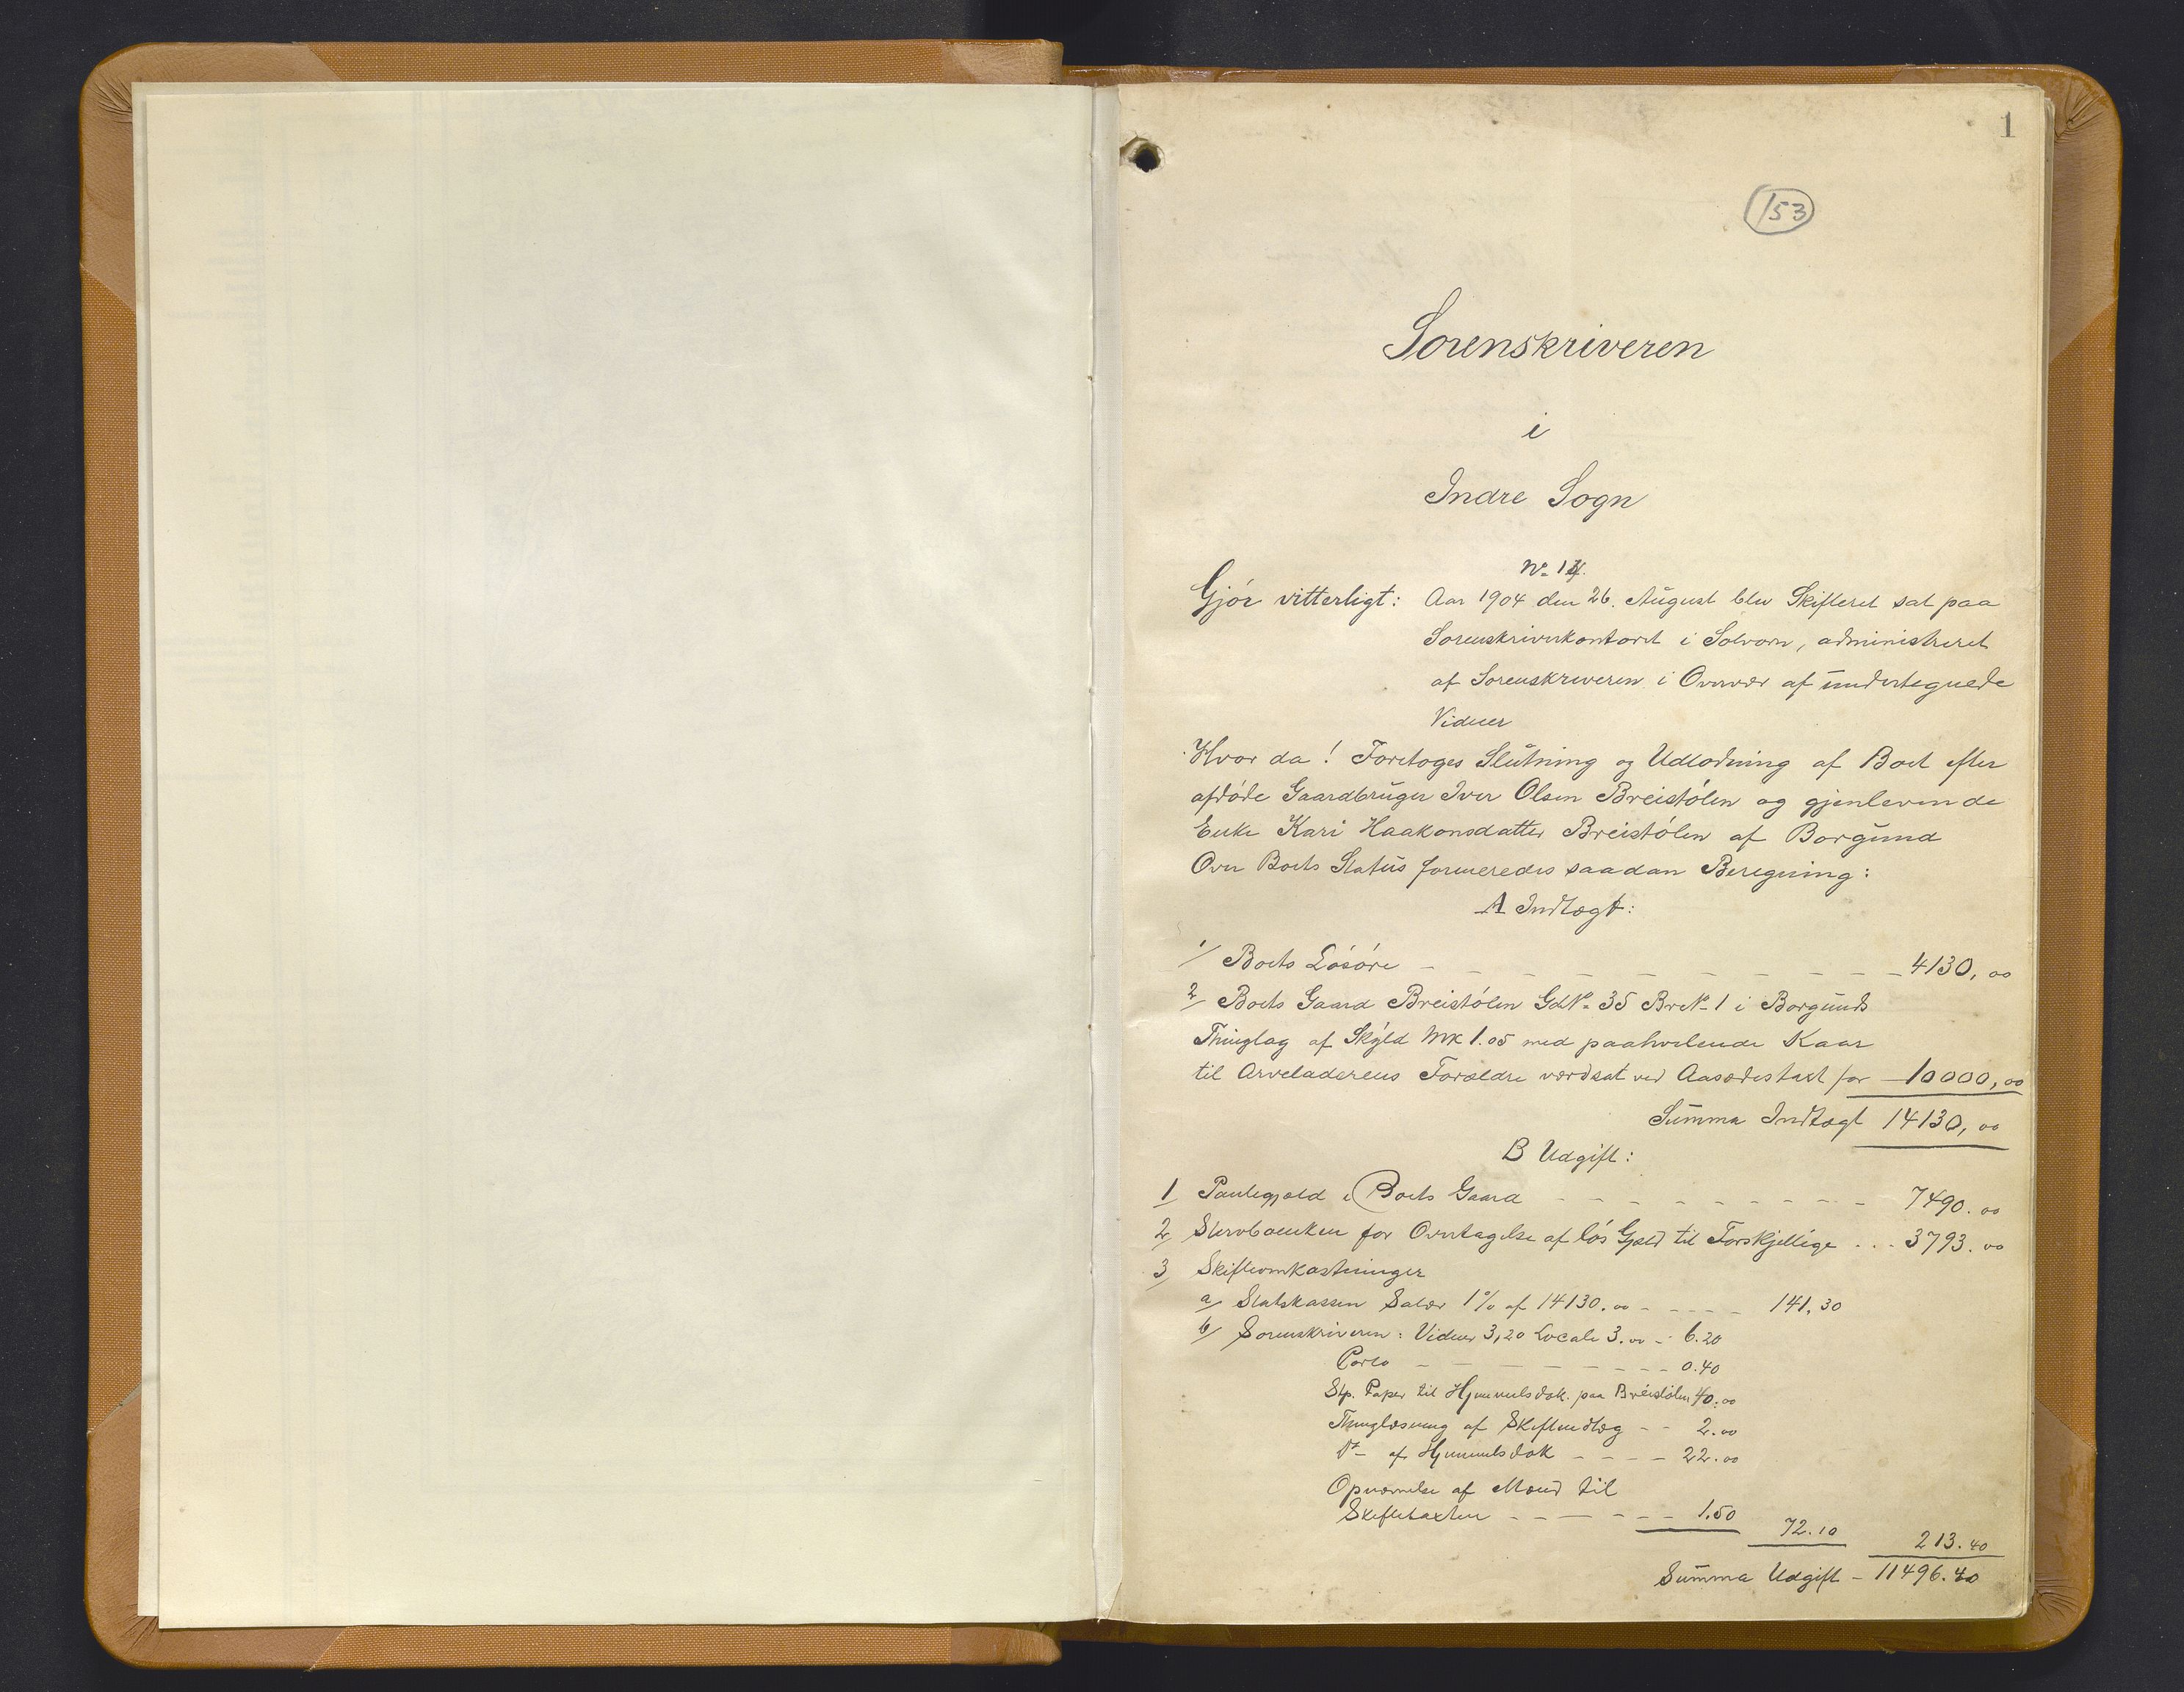 1
153
Sorenskriveren
i
Indre Sogn
No 14.
Gjör vitterligt: Aar 1904 den 26. August blev Skifteret sat paa
Sorenskriverkontoret i Solvorn, administreret
af Sorenskriveren i Overvær af undertegnede
Vidner
Hvor da! Foretoges Slutning og Udlodning af Boet efter
afdöde Gaardbruger Iver Olsen Breistölen og gjenlevende
Enke Kari Haakonsdatter Breistölen af Borgund
Over Boets Status formeredes saadan Beregning:
A Indtægt:
1/ Boets Lösöre - - - - - - - - - 4130, 00
2/ Boets Gaard Breistölen GdNo 35 BrNo 1 i Borgunds
Thinglag af Skyld Mk 1.05 med paahvilende Kaar
til Arveladerens Forældre værdsat ved Aasædestaxt for - 10000, 00
Summa Indtægt 14130, 00
B Udgift:
1/ Pantegjæld i Boets Gaard - - - - - - - - - 7490. 00
2/ Stervboenken for Overtagelse af lös Gjæld til Forskjellige . . . 3793. 00
3/ Skifteomkostninger
a/ Statskassen Salær 1% af 14130. 00 - - - - - 141, 30
b/ Sorenskriveren: Vidner 3,20 Locale 3. 00 - 6.20
Porto - - - - - - - - 0.40
Stp. Papir til Hjemmelsdok. paa Breistölen 40. 00
Thinglæsning af Skifteudlæg - - 2. 00
Do af Hjemmelsdok - - - - 22. 00
Opnævnelse af Mænd til
Skiftetaxten - - - - - - 1.50
72. 10 213. 40
Summa Udgift - 11496. 40